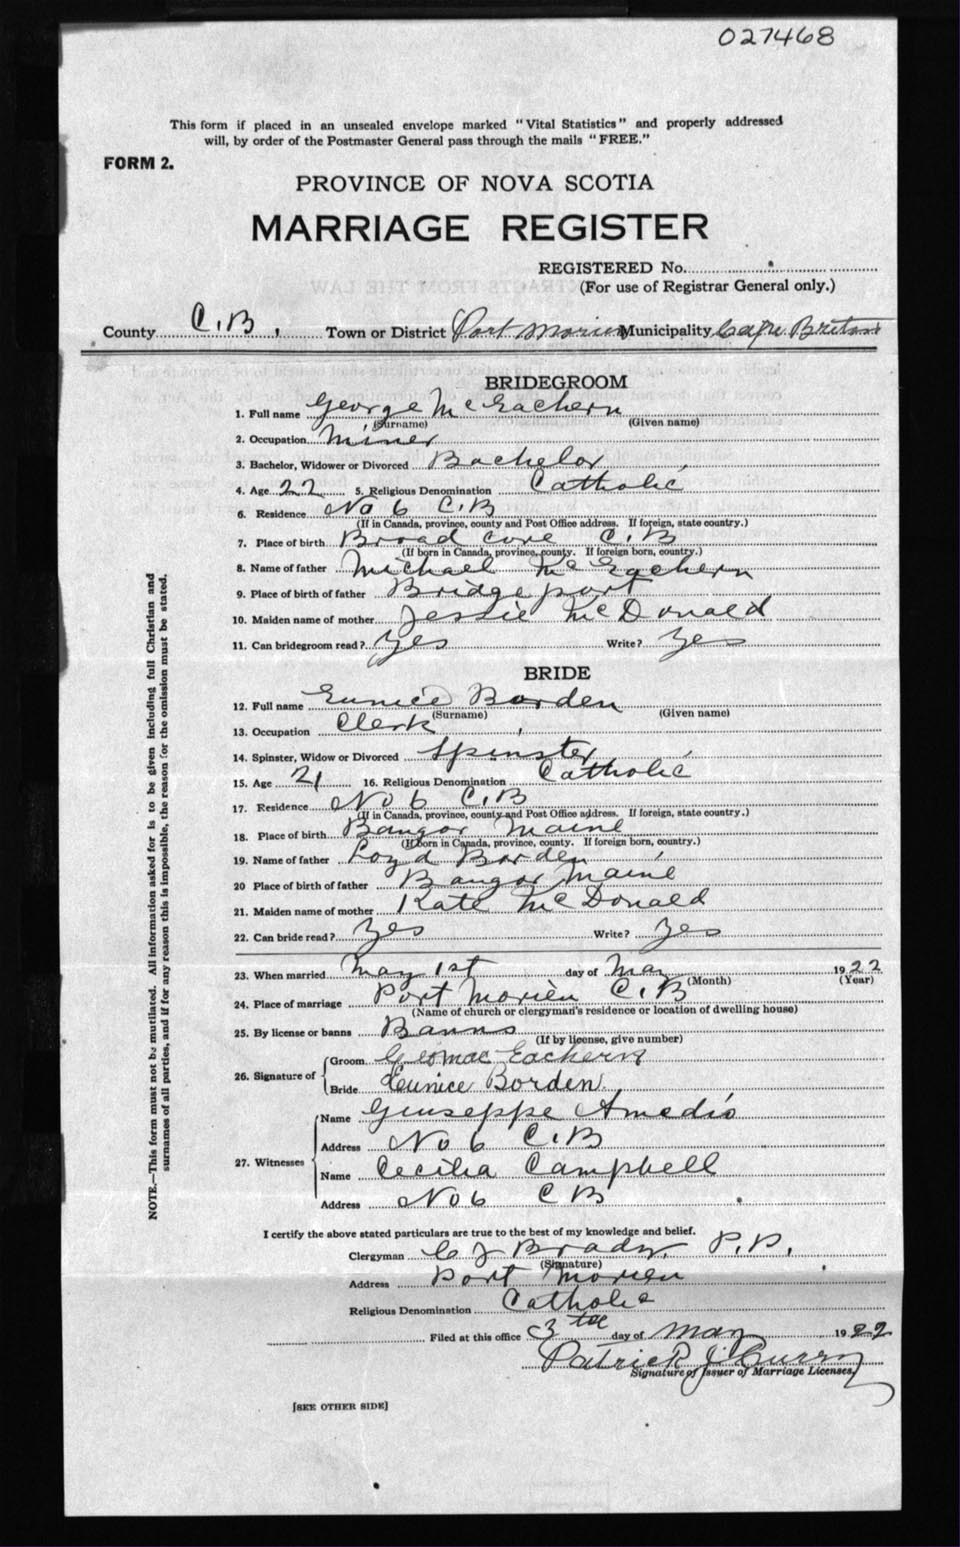 027468
This form if placed in an unsealed envelope marked "Vital Statistics" and properly addressed
will, by order of the Postmaster General pass through the mails "FREE."
FORM 2.
PROVINCE OF NOVA SCOTIA
MARRIAGE REGISTER
REGISTERED No.
(For use of Registrar General only.)
County C.B. Town or District Port Morien Municipality Cape Breton
BRIDEGROOM
1. Full name George McEachern
(Surname) (Given name)
2. Occupation Miner
3. Bachelor, Widower or Divorced Bachelor
4. Age 22 5. Religious Denomination Catholic
6. Residence No 6 C.B
(If in Canada, province, county and Post Office address. If foreign, state country.)
7. Place of birth Broad Cove C.B
(If born in Canada, province, county. If foreign born, country.)
8. Name of father Michael McEachern
9. Place of birth of father Bridgeport
10. Maiden name of mother Jessie McDonald
11. Can bridegroom read? Yes Write? Yes
BRIDE
12. Full name Eunice Borden
(Surname) (Given name)
13. Occupation Clerk
14. Spinster, Widow or Divorced Spinster
15. Age 21 16. Religious Denomination Catholic
17. Residence No 6 C.B
(If in Canada, province, county and Post Office address. If foreign, state country.)
18. Place of birth Bangor Maine
(If born in Canada, province, county. If foreign born, country.)
19. Name of father Loyd Borden
20 Place of birth of father Bangor Maine
21. Maiden name of mother Kate McDonald
22. Can bride read? Yes Write? Yes
23. When married May 1st day of May 1922
(Month) (Year)
24. Place of marriage Port Morien C.B
(Name of church or clergyman's residence or location of dwelling house)
25. By license or banns Banns
(If by license, give number)
26. Signature of
Groom Geo Mac Eachern
Bride Eunice Borden
27. Witnesses
Name Giuseppe Amedio
Address No 6 C.B
Name Cecilia Campbell
Address No 6 C B
I certify the above stated particulars are true to the best of my knowledge and belief.
Clergyman C J Brady P.P.
(Signature)
Address Port Morien
Religious Denomination Catholic
Filed at this office 3 day of May 1922
Patrick J Curry
Signature of Issuer of Marriage Licenses.
[SEE OTHER SIDE]
NOTE.—This form must not be mutilated. All information asked for is to be given including full Christian and
surnames of all parties, and if for any reason this is impossible, the reason for the omission must be stated.